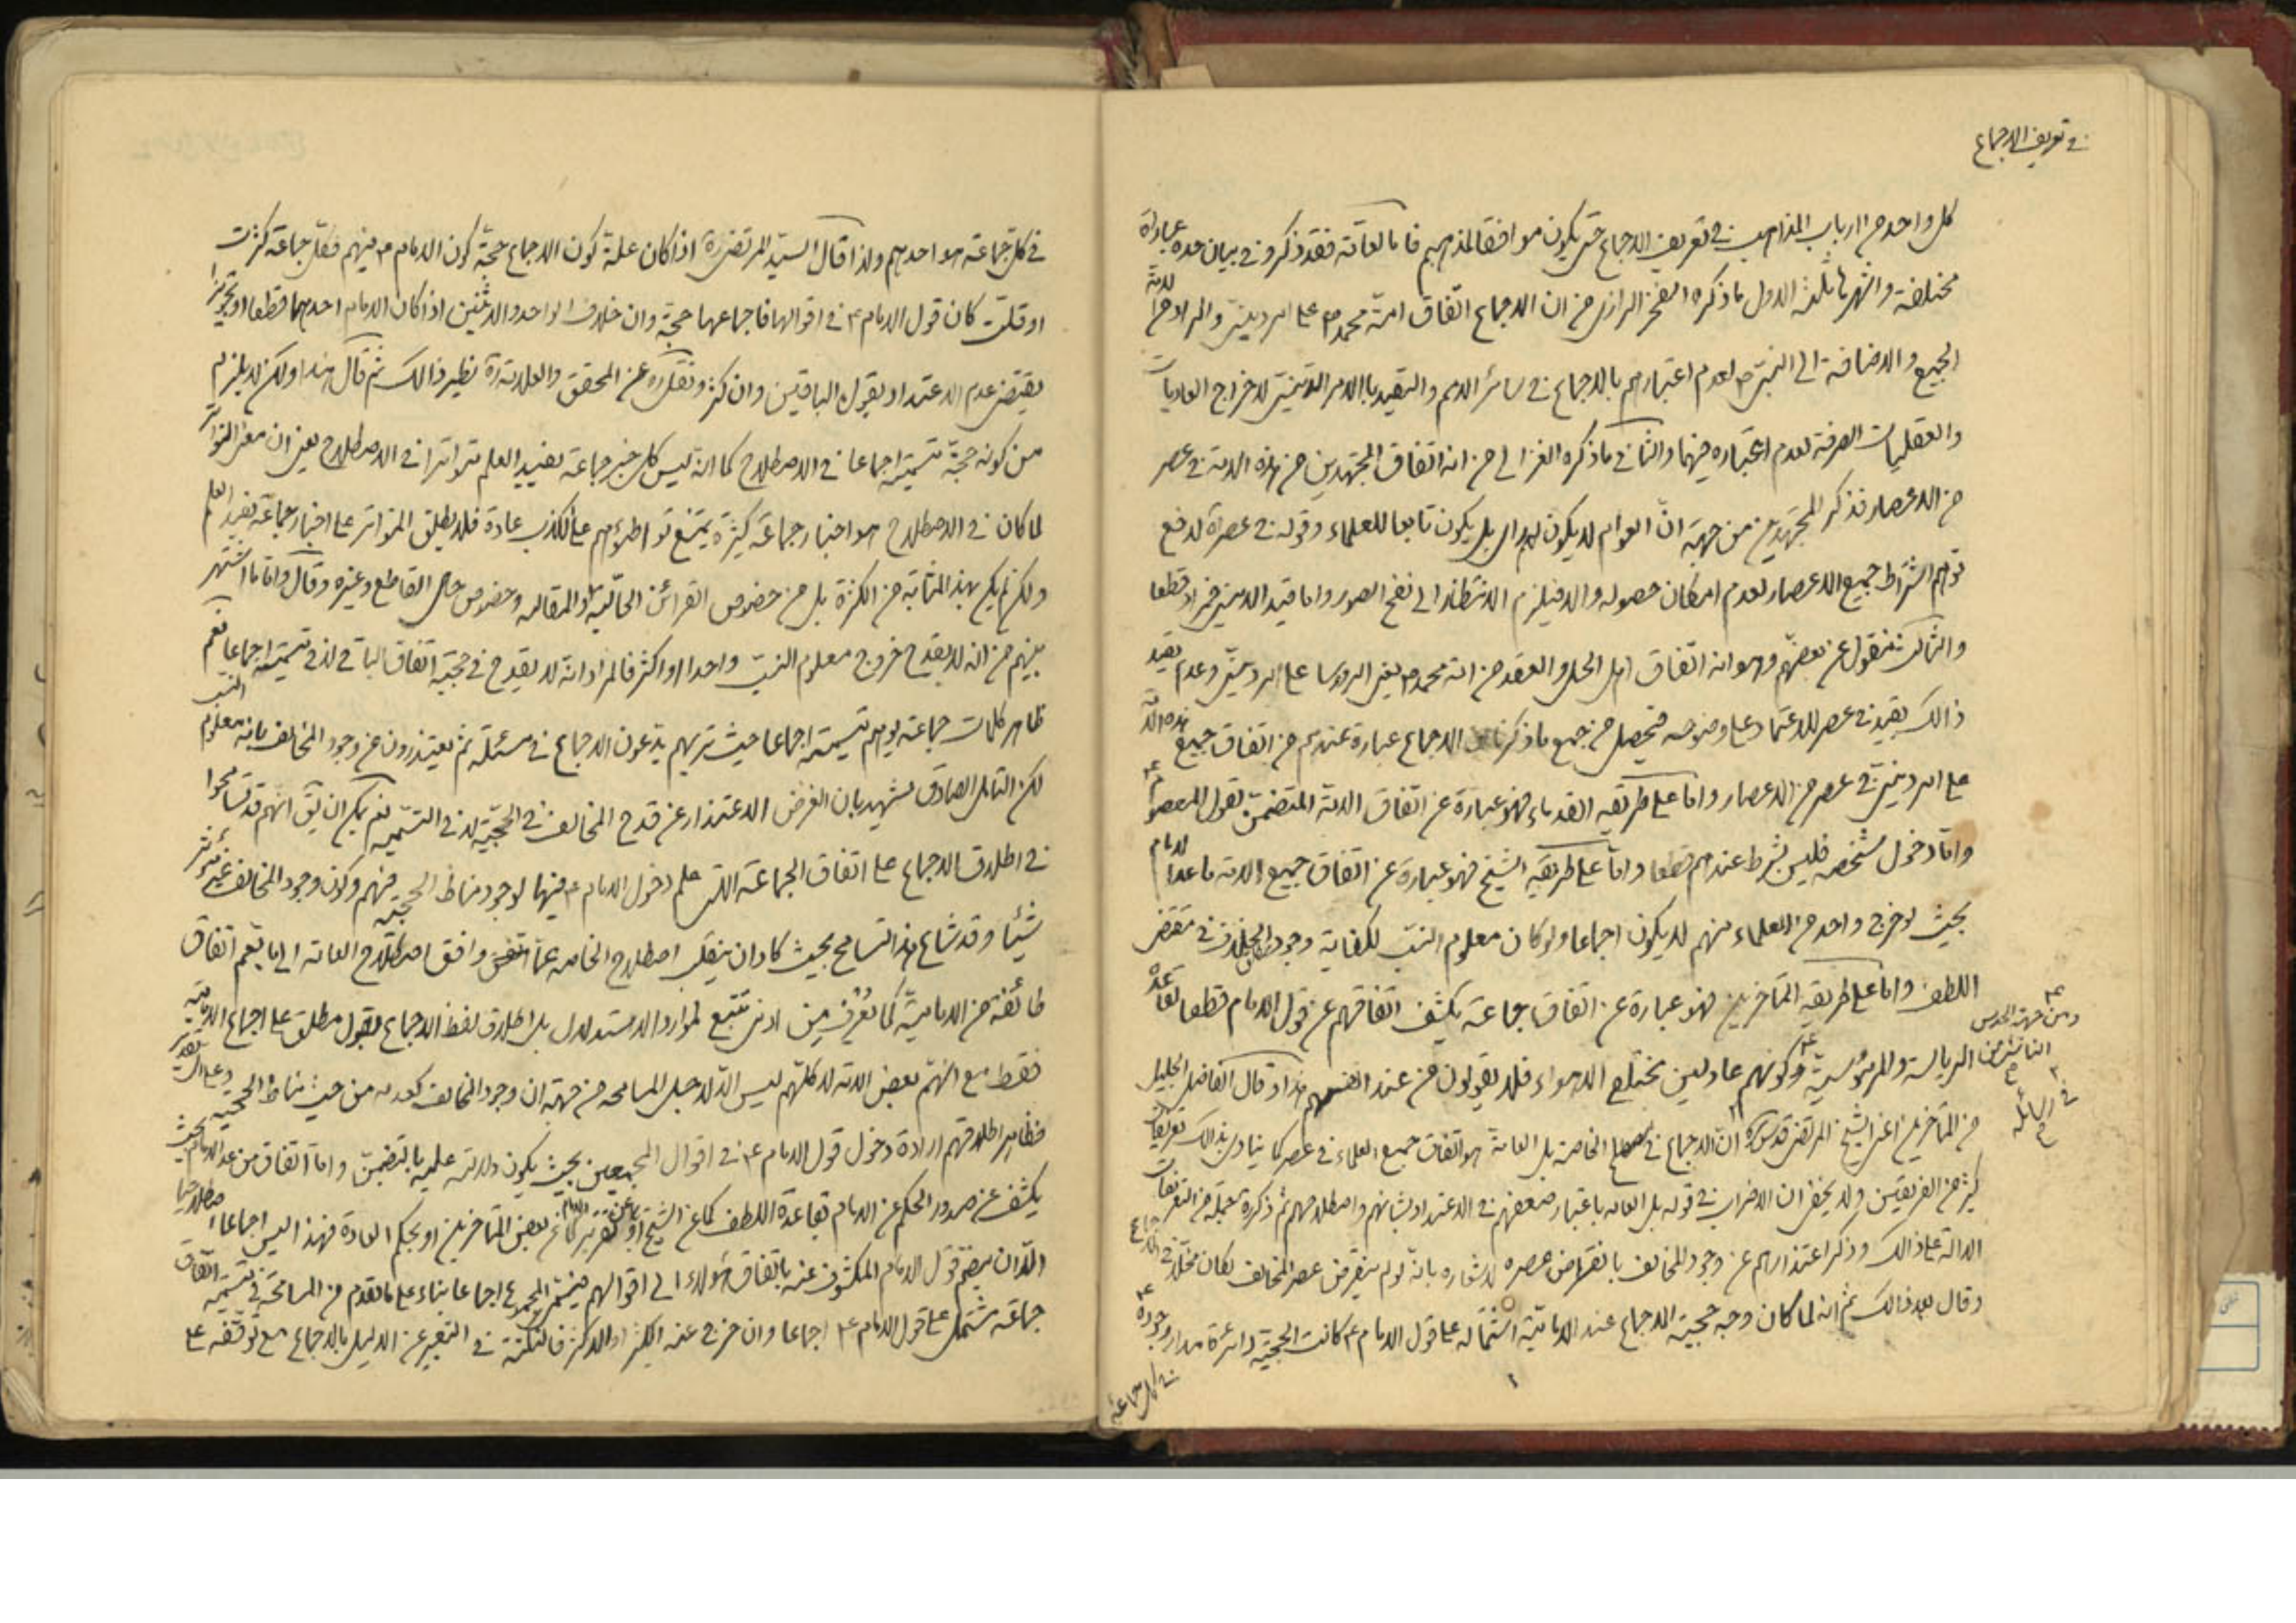 في تعريف الاجماع
كل واحد من ارباب المذاهب في تعريف الاجماع حتى يكون موافقا لمذهبهم فاما العامّة فقد ذكروا في بيان حده عبارات
مختلفة واشهرها ثلث الاول ما ذكره الفخر الرازي من ان الاجماع اتفاق امّة محمد ص على امر ديني والمراد من الامة
الجميع والاضافة الى النبي ص لعدم اعتبارهم بالاجماع في سائر الامم والتقييد بالامر الديني لاخراج العاديات
والعقليات الصرفة لعدم اعتباره فيهما والثاني ما ذكره الغزالي من انه اتفاق المجتهدين من هذه الامة في عصر
من الاعصار فذكر المجتهدين من جهة انّ العوام لا يكون لهم راى بل يكون تابعا للعلماء وقوله في عصره لدفع
توهم اشتراط جميع الاعصار لعدم امكان حصوله والا فيلزم الانتظار الى نفخ الصور واما قيد الديني فمراد قطعا
والثالث منقول عن بعضهم وهو انه اتفاق اهل الحل والعقد من امة محمد ص يعني الروسا على امر ديني وعدم تقييد
ذالك بقيد في عصر للاعتماد على وضوحه فتحصل من جميع ما ذكرنا ان الاجماع عبارة عندهم من اتفاق جميع هذه الامّة
على امر ديني في عصر من الاعصار واما على طريقه القدماء فهو عبارة عن اتفاق الامّة المتضمن لقول المعصوم ع
وامّا دخول شخصه فليس بشرط عندهم قطعا وامّا على طريقة الشيخ فهو عبارة عن اتفاق جميع الامة ما عدا الامام
بحيث لو خرج واحد من العلماء منهم لا يكون اجماعا ولو كان معلوم النسب لكفاية وجود الخلاف في مقتضى قاعدة
اللطف واما على طريقه المتأخرين فهو عبارة عن اتفاق جماعة يكشف اتفاقهم عن قول الامام قطعا
ومن جهة الحدس
الناشى من الرياسة والمرؤسية وكونهم عادلين مختلع الاهواء فلا يقولون من عند انفسهم هذا وقال الفاضل الجليل
في رسائله
من المتأخرين اعني الشيخ المرتضى قدس سره انّ الاجماع في مصطلح الخاصة بل العامة هو اتفاق جميع العلماء في عصر كما ينادى بذالك تعريفات
كثير من الفريقين ولا يخفى ان الاضراب في قوله بل العامه باعتبار ضعفهم في الاعتداد بشانهم واصطلاحهم ثم ذكر جملة من التعريفات
الدالة على ذالك وذكر اعتذارهم عن وجود المخالف بانقراض عصره لاشعاره بانّه لو لم ينقرض عصر المخالف لكان مخلا في الاجماع
وقال بعد ذالك ثم انه لما كان وجه حجية الاجماع عند الاماميّة اشتماله على قول الامام ع كانت الحجيّة دائرة مدار وجوده ع
في كل جماعة
في كلّ جماعة هو احدهم ولذا قال السيّد المرتضى ره اذا كان علة كون الاجماع حجّة كون الامام ع فيهم فكل جماعة كثرت
او قلت كان قول الامام ع في اقوالها فاجماعها حجة وان خلاف الواحد والاثنين اذا كان الامام احدهما قطعا او تجويزا
يقتضى عدم الاعتداد بقول الباقين وان كثروا ونقل ره عن المحقق والعلامة ره نظير ذالك ثم قال هذا ولكن لا يلزم
من كونه حجّة تسميته اجماعا في الاصطلاح كما انّه ليس كل خبر جماعة يفيد العلم متواترا في الاصطلاح يعني ان معنى التواتر
لما كان في الاصطلاح هو اخبار جماعة كثيرة يمتنع تواطؤهم على الكذب عادة فلا يطلق المتواتر على اخبار جماعة يفيد العلم
ولكن لم يكن بهذه المثابة من الكثرة بل من خصوص القرائن الحاليّة والمقاليه وخصوص حال القاطع وغيره وقال وامّا ما اشتهر
بينهم من انه لا يقدح خروج معلوم النسب واحدا او اكثر فالمراد انّه لا يقدح في حجيّة اتفاق الباقي لا في تسميته اجماعا نعم
ظاهر كلمات جماعة يوهم تسميته اجماعا حيث تريهم يدّعون الاجماع في مسئلة ثم يعتذرون عن وجود المخالف بانه معلوم النسب
لكن التامل الصادق يشهد بان الغرض الاعتذار عن قدح المخالف في الحجيّة لا في التسميه نعم يمكن ان يقال انهم قد تسامحوا
في اطلاق الاجماع على اتفاق الجماعة التى علم دخول الامام ع فيها لوجود مناط الحجيّة فيهم وكون وجود المخالف غير مؤثر
شيئا وقد شاع هذا التسامح بحيث كاد ان ينقلب اصطلاح الخاصه عمّا وافق اصطلاح العامة الى ما يعم اتفاق
طائفة من الاماميّة كما يعرف من ادنى تتبع لموارد الاستدلال بل اطلاق لفظ الاجماع بقول مطلق على اجماع الاماميّة
فقط مع انّهم بعض الامة لا كلّهم ليس الّا لاجل المسامحه من جهة ان وجود المخالف كعدمه من حيث مناط الحجيّة وعلى اى تقدير
فظاهر اطلاقهم ارادة دخول قول الامام ع في اقوال المجمعين بحيث يكون دلالته عليه بالتضمّن وامّا اتفاق من عدا الامام بحيث
يكشف عن صدور الحكم عن الامام بقاعدة اللطف كما عن الشيخ او تقرير الامام كما عن بعض المتأخرين او بحكم العادة فهذا ليس اجماعا اصطلاحيا
الّا ان ينضم قول الامام المكشوف عنه باتفاق هؤلاء الى اقوالهم فيسمّى المجموع اجماعا بناء على ما تقدم من المسامحة في تسمية اتفاق
جماعة مشتمل على قول الامام ع اجماعا وان خرج عنه الكثير او الاكثر فالنكتة في التعبير عن الدليل بالاجماع مع توقفه على